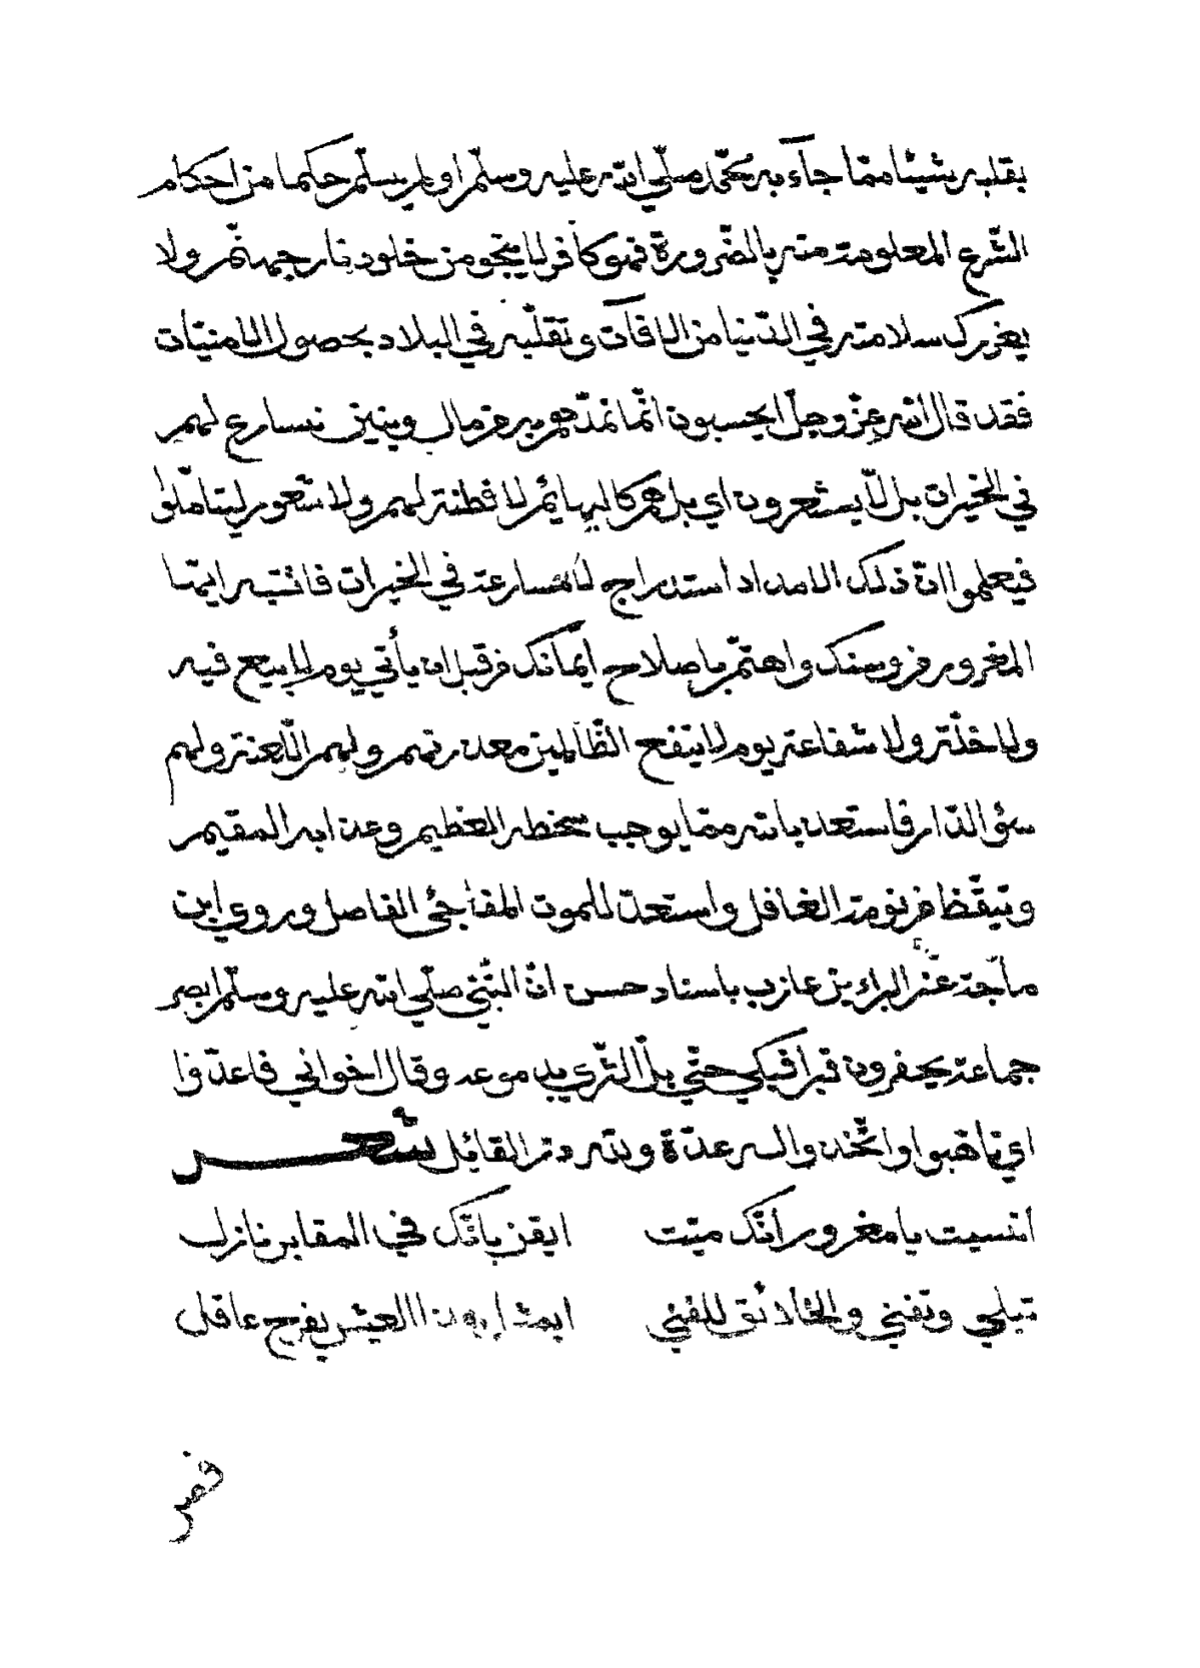 بقلبه شيئا ممّا جآء به محمّد صلّي الله عليه وسلّم او لم يسلّم حكما من احكام
الشّرع المعلومة منه بالضّرورة فهو كافر لا ينجو من خلود نار جهنّم ولا
يغررك سلامته في الدّنيا من الافآت وتقلّبه في البلاد بحصول الامنيّات
فقد قال الله عزّ وجلّ ايحسبون انّما نمدّهم به من مال وبنين نسارع لهم
في الخيرات بل لّا يشعرون اي بل هم كالبهائم لا فطنة لهم ولا شعور ليتامّلوا
فيعلموا انّ ذلك الامداد استدراج لا مسارعة في الخيرات فانتبه ايها
المغرور من وسنك واهتمّ باصلاح ايمانك من قبل ان يأتي يوم لا بيع فيه
ولا خلّة ولا شفاعة يوم لا ينفع الظّالمين معذرتهم ولهم اللّعنة ولهم
سؤ الدّار فاستعذ بالله ممّا يوجب سخطه العظيم وعذابه المقيم
وتيقّظ من نومة الغافل واستعدّ للموت المفاجئ الفاصل وروي ابن
ماجة عن البراء بن عازب باسناد حسن انّ النّبيّ صلّي الله عليه وسلّم ابصر
جماعة يحفرون قبرا فبكي حتّي بلّ الثّري بدموعه وقال اخواني فاعدّوا
اي تاهبوا واتّخذوا له عدّة ولله درّ القائل شعر
اننسيت يا مغرور أنّك ميّت ايقن بانّك في المقابر نازل
تبلي وتفني والخلائق للفني ابمثل هذا العيش يفرح عاقل